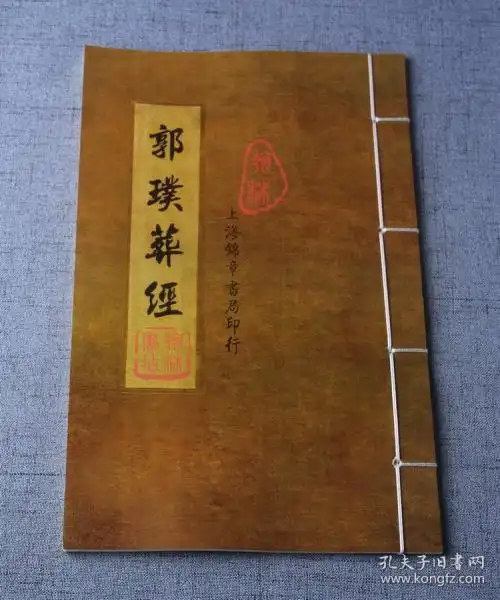 郭璞葬經
上海錦章書局印行
孔夫子旧书网
www.kongfz.com